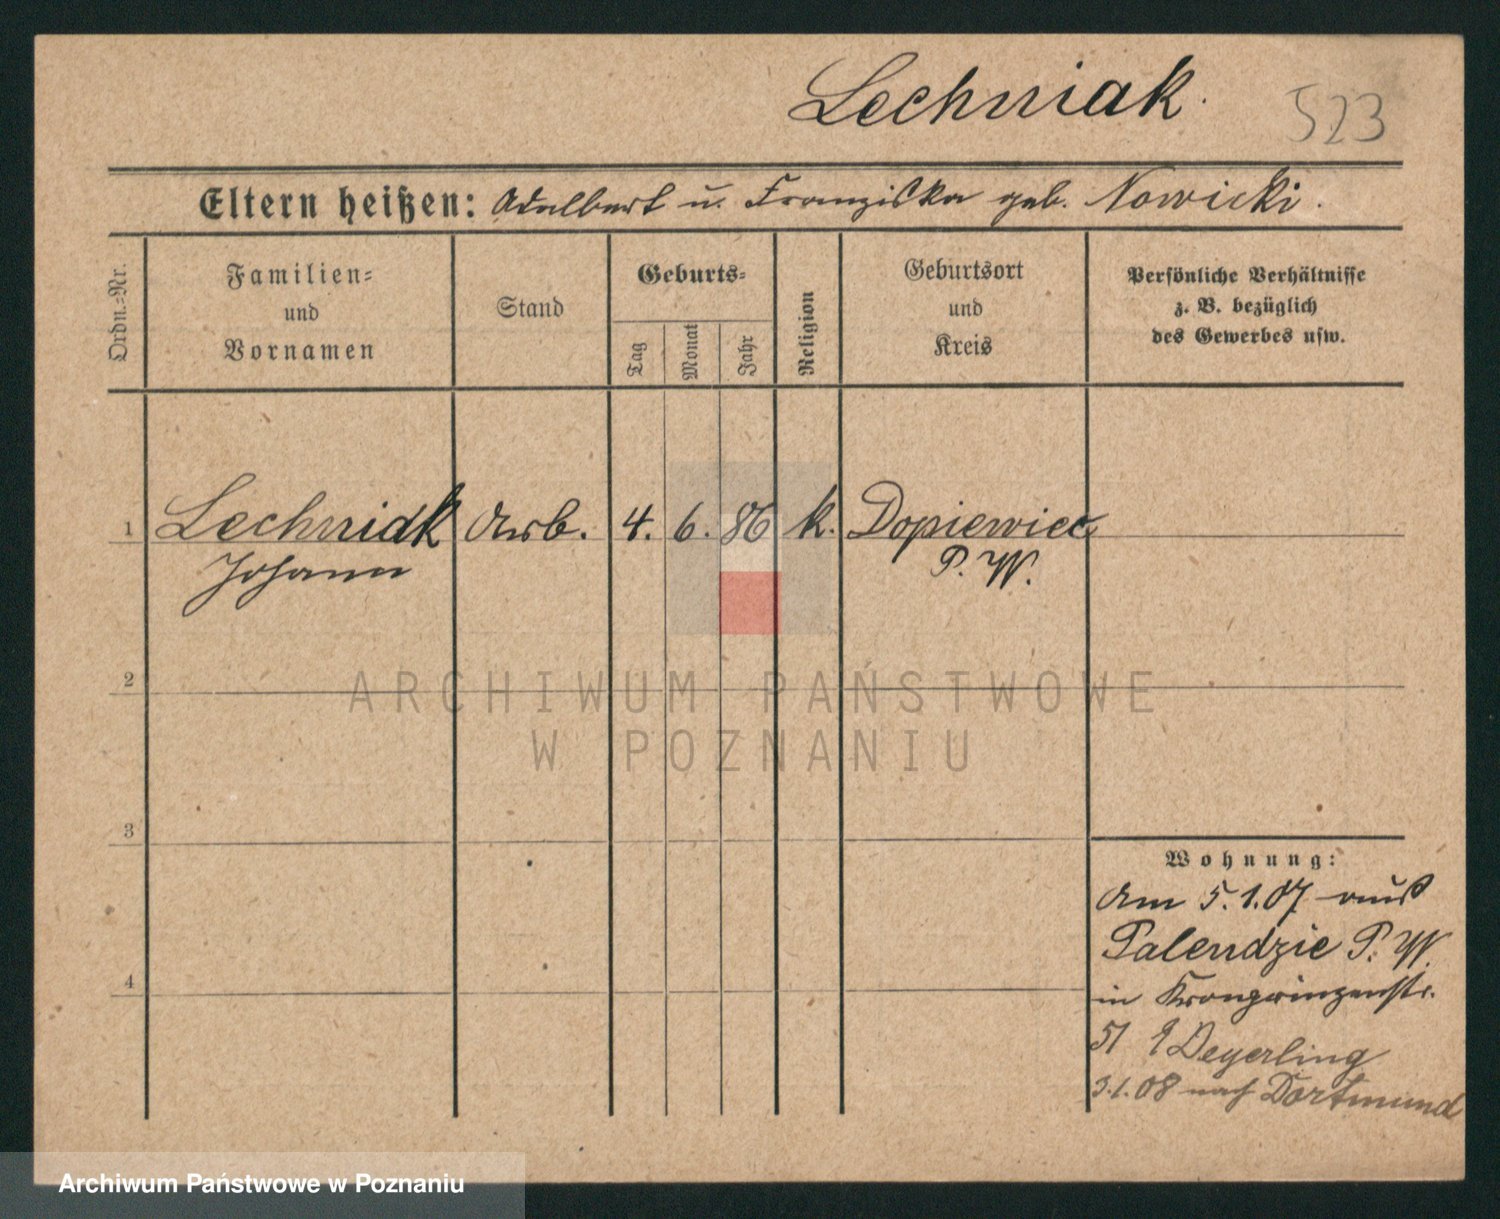 Lechniak.
523
Eltern heißen: Adalbert u. Franziska geb. Nowicki.
Ordn.=Nr.
Familien=
und
Vornamen
Stand
Geburts=
Tag
Monat
Jahr
Religion
Geburtsort
und
Kreis
Persönliche Verhältnisse
z. B. bezüglich
des Gewerbes usw.
1 Lechniak Arb. 4. 6. 86 k. Dopiewiec
Johann P. W.
2
ARCHIWUM PAŃSTWOWE
W POZNANIU
3
Wohnung:
Am 5.1.07 aus
Palendzie P. W.
4
in Kronprinzenstr.
51 Deyerling
3.1.08 nach Dortmund
Archiwum Państwowe w Poznaniu